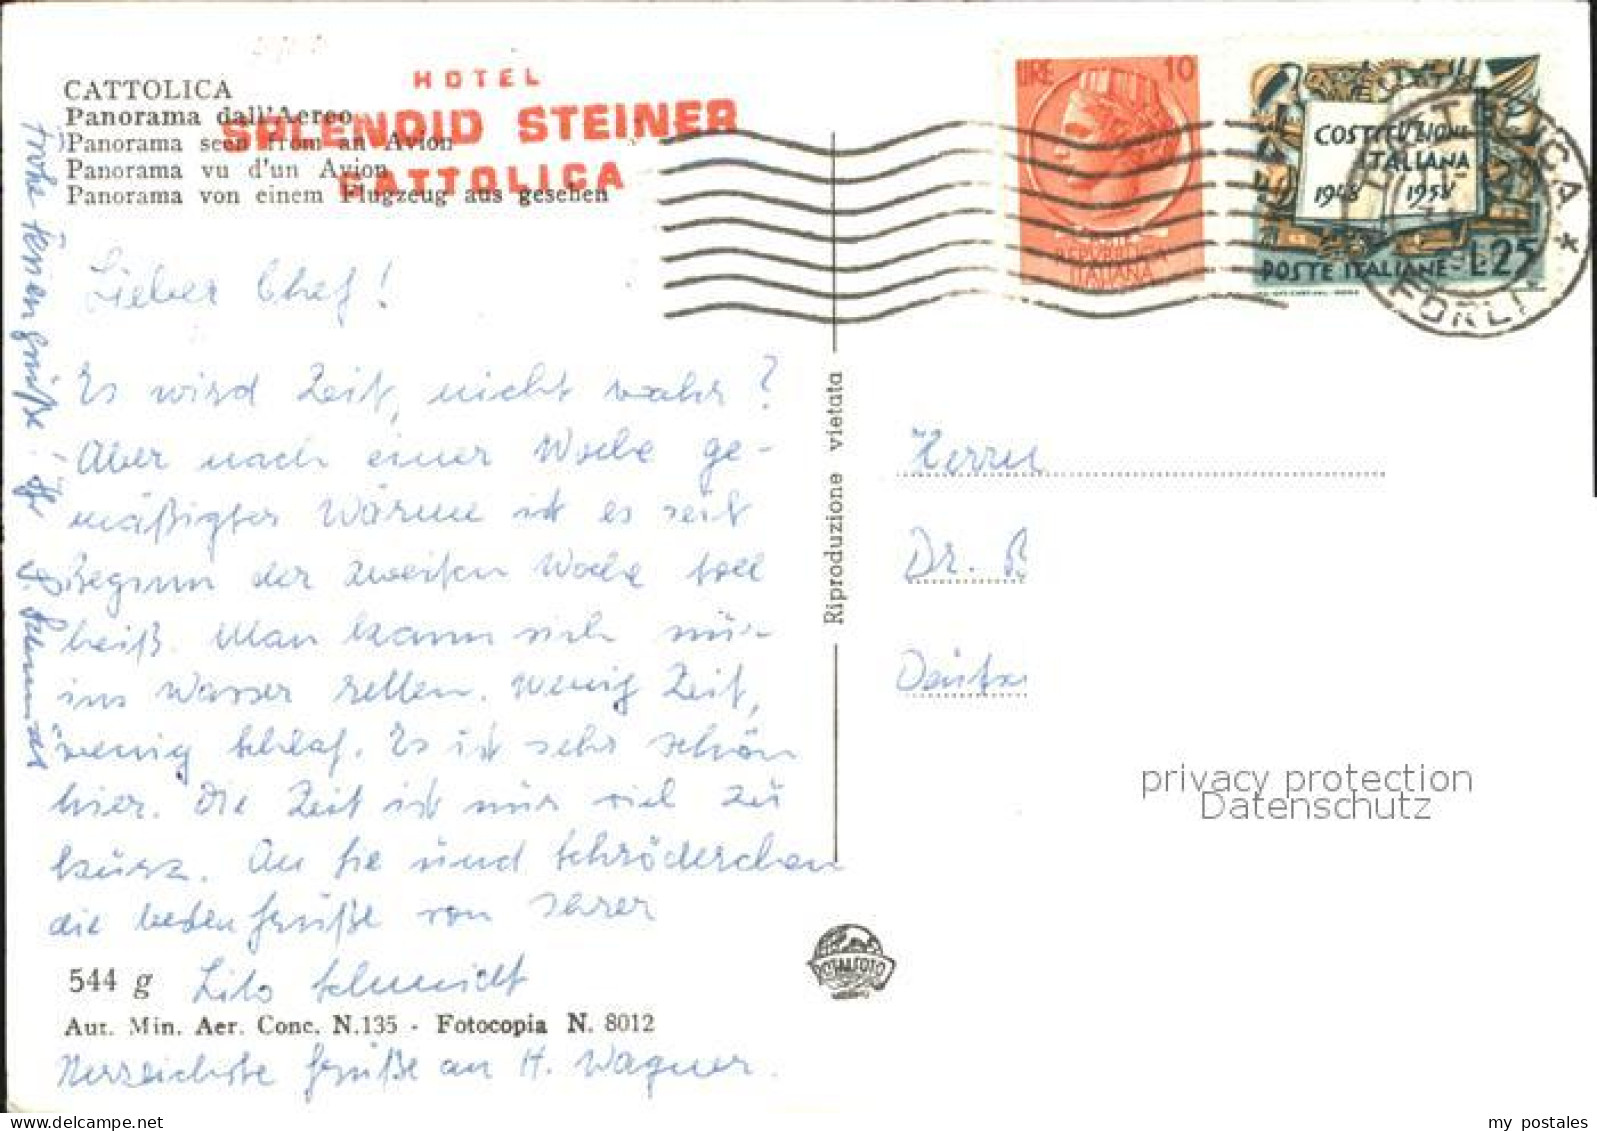 CATTOLICA
Panorama dall'Aereo
Panorama seen from an Avion
Panorama vu d'un Avion
Panorama von einem Flugzeug aus gesehen
HOTEL
SPLENDID STEINER
CATTOLICA
LIRE 10
POSTE
REPVBBLICA
ITALIANA
COSTITVZIONE
ITALIANA
1948 1958
POSTE ITALIANE L25
CATTOLICA *
FORLI
Lieber Chef!
Es wird Zeit, nicht wahr?
Aber nach einer Woche ge-
mäßigter Wärme ist es seit
Beginn der zweiten Woche toll
heiß. Man kann sich nur
ins Wasser retten. Wenig Zeit,
wenig Schlaf. Es ist sehr schön
hier. Die Zeit ist nur viel zu
kurz. An Sie und Schröderchen
die besten Grüße von Ihrer
Lilo Schmidt
544 g
Aut. Min. Aer. Conc. N.135 - Fotocopia N. 8012
Herzlichste Grüße an H. Wagner.
Frohe Feriengrüße! Ihr
Schmidt
Riproduzione vietata
Herrn
Dr. B
Deutsc
privacy protection
Datenschutz
ITALFOTO
my postales